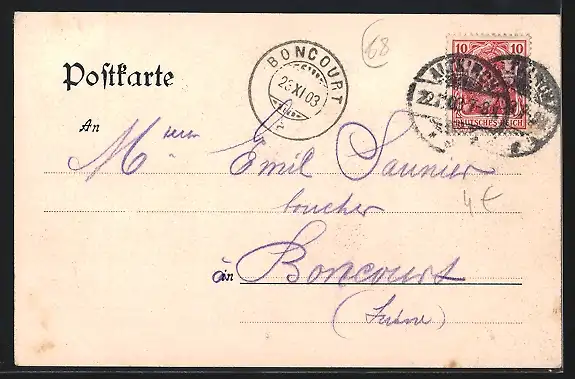 BONCOURT
23 XI 03
68
10 10
DEUTSCHES REICH
Postkarte
An
Emil Saunier
boucher
4€
à in Boncourt